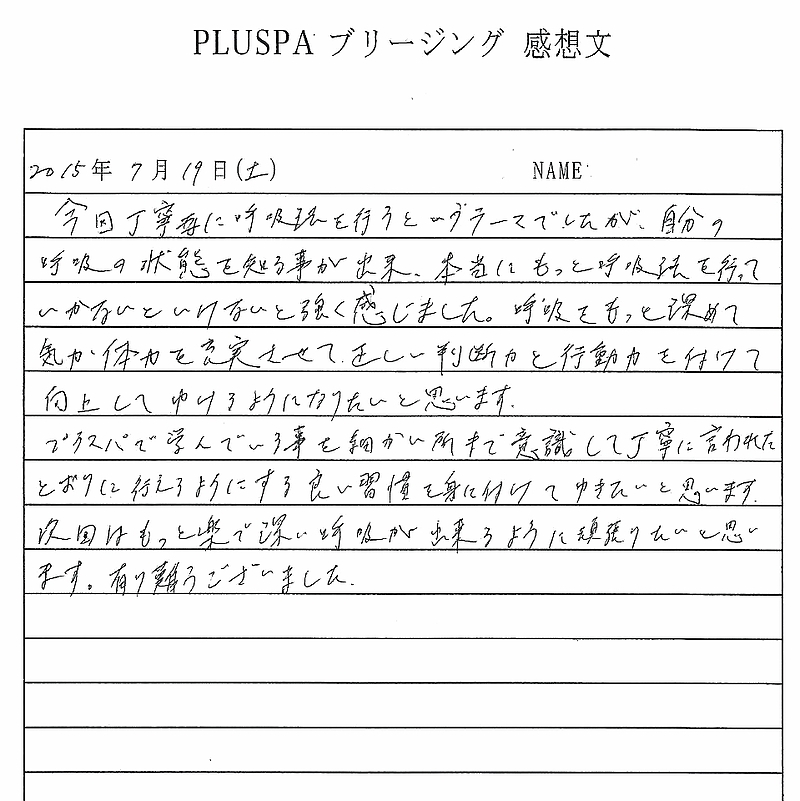 PLUSPA ブリージング 感想文
2015年 7月 19日(土) NAME
今回丁寧に呼吸法を行うというテーマでしたが、自分の
呼吸の状態を知る事が出来、本当にもっと呼吸法を行って
いかないといけないと強く感じました。呼吸をもっと深めて
気力体力を充実させて、正しい判断力と行動力を付けて
向上してゆけるようになりたいと思います。
プラスパで学んでいる事を細かい所まで意識して丁寧に言われた
とおりに行えるようにする良い習慣を身に付けてゆきたいと思います。
次回はもっと楽で深い呼吸が出来るように頑張りたいと思い
ます。有り難うございました。